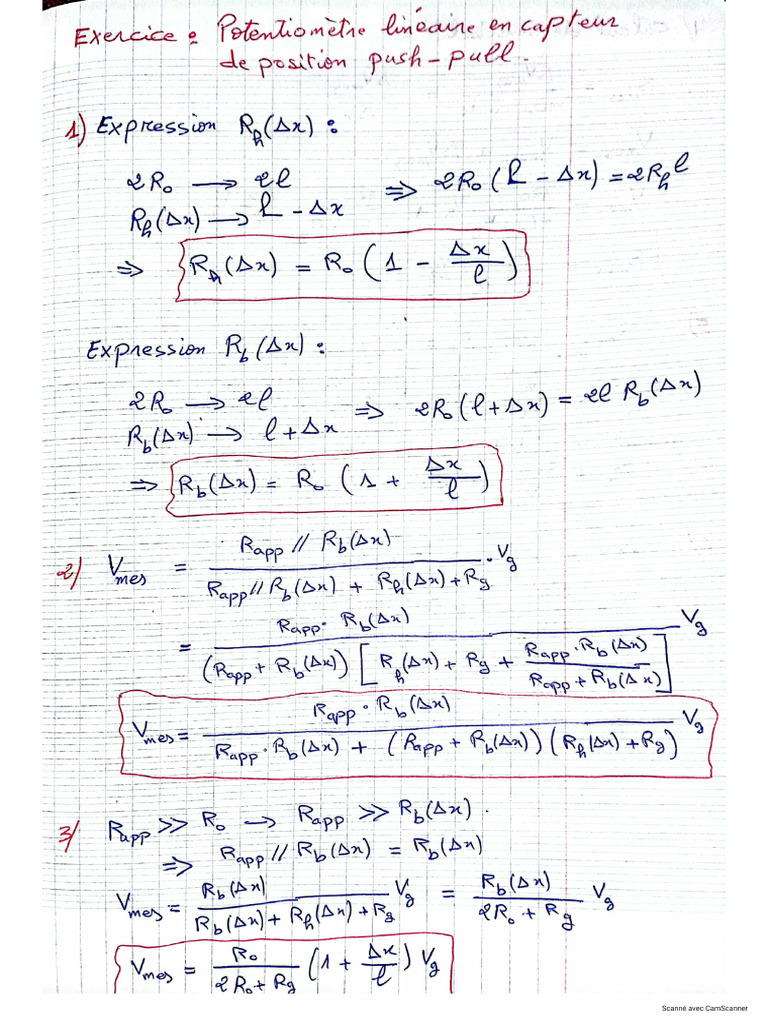 Exercice : Potentiomètre linéaire en capteur
de position push-pull.
1) Expression R_h(Δx) :
2R₀ → 2l
R_h(Δx) → l - Δx
⇒ 2R₀(l - Δx) = 2R_h l
⇒ R_h(Δx) = R₀(1 - Δx/l)
Expression R_b(Δx) :
2R₀ → 2l
R_b(Δx) → l + Δx
⇒ 2R₀(l + Δx) = 2l R_b(Δx)
⇒ R_b(Δx) = R₀(1 + Δx/l)
2) V_mes = (R_app // R_b(Δx)) / (R_app // R_b(Δx) + R_h(Δx) + R_g) · V_g
= (R_app · R_b(Δx)) / ((R_app + R_b(Δx)) [R_h(Δx) + R_g + (R_app · R_b(Δx)) / (R_app + R_b(Δx))]) V_g
V_mes = (R_app · R_b(Δx)) / (R_app · R_b(Δx) + (R_app + R_b(Δx)) (R_h(Δx) + R_g)) V_g
3) R_app >> R₀ → R_app >> R_b(Δx).
⇒ R_app // R_b(Δx) = R_b(Δx)
V_mes = R_b(Δx) / (R_b(Δx) + R_h(Δx) + R_g) V_g = R_b(Δx) / (2R₀ + R_g) V_g
V_mes = R₀ / (2R₀ + R_g) (1 + Δx/l) V_g
Scanné avec CamScanner